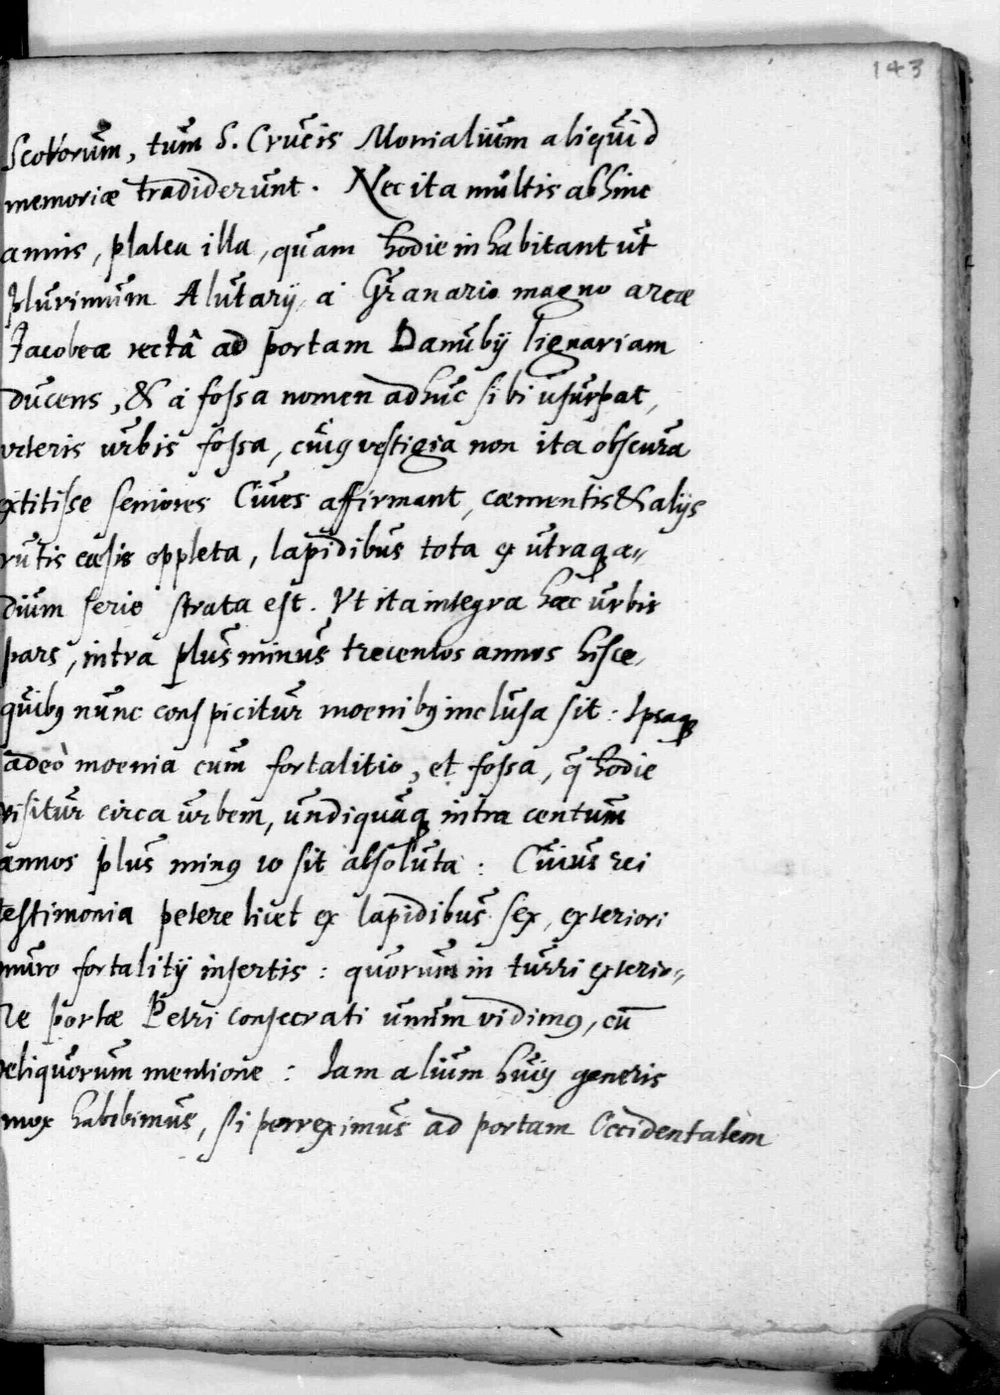 143
Scotorum, tum S. Crucis Monialium aliquid
memoriæ tradiderunt. Nec ita multis abhinc
annis, platea illa, quam hodie inhabitant ut
plurimum Alutarij, à Granario magno areæ
Jacobeæ rectâ ad portam Danubij lignariam
ducens, & à fossa nomen adhuc sibi usurpat,
veteris urbis fossa, cuiꝰ vestigia non ita obscura
extitisse seniores Cives affirmant, cæmentis & alijs
rutis cæsis oppleta, lapidibus tota ex utraq; æ-
dium serie strata est. Vt ita integra hæc urbis
pars, intra plus minus trecentos annos hisce,
quibꝰ nunc conspicitur moenibꝰ inclusa sit: Ipsaq;
adeò moenia cum fortalitio, et fossa, q̃ hodie
visitur circa urbem, undiquaq; intra centum
annos plus minꝰ 10 sit absoluta: Cuius rei
testimonia petere licet ex lapidibus sex, exteriori
muro fortalitij insertis: quorum in turri exterio-
re portæ Petri consecrati unum vidimꝰ, cũ
reliquorum mentione: Iam alium huiꝰ generis
mox habebimus, si perreximus ad portam Occidentalem